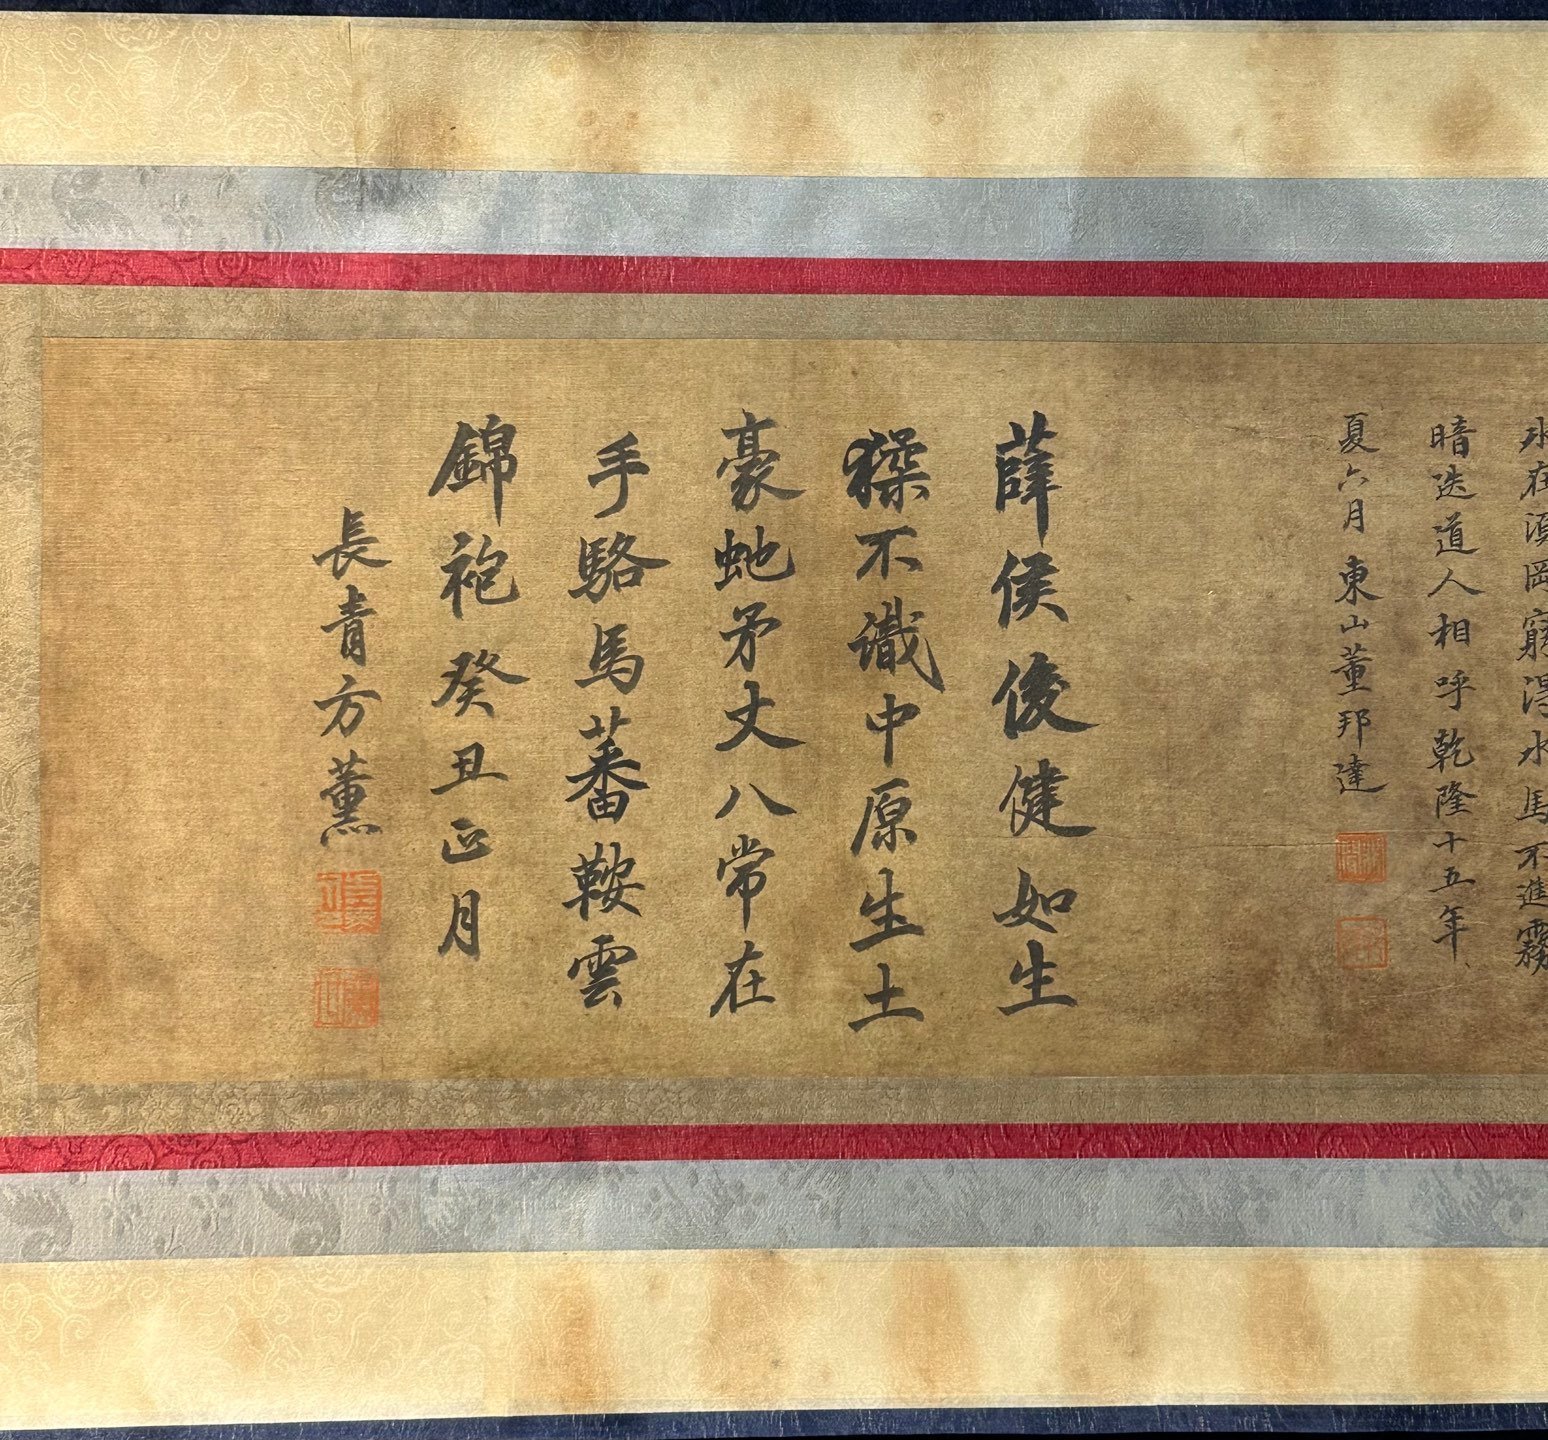 水在須岡窮得水馬不進霧
暗迷道人相呼乾隆十五年
夏六月東山董邦達
薛侯俊健如生
猱不識中原生土
豪虵矛丈八常在
手駱馬蕃鞍雲
錦袍癸丑正月
長青方薰